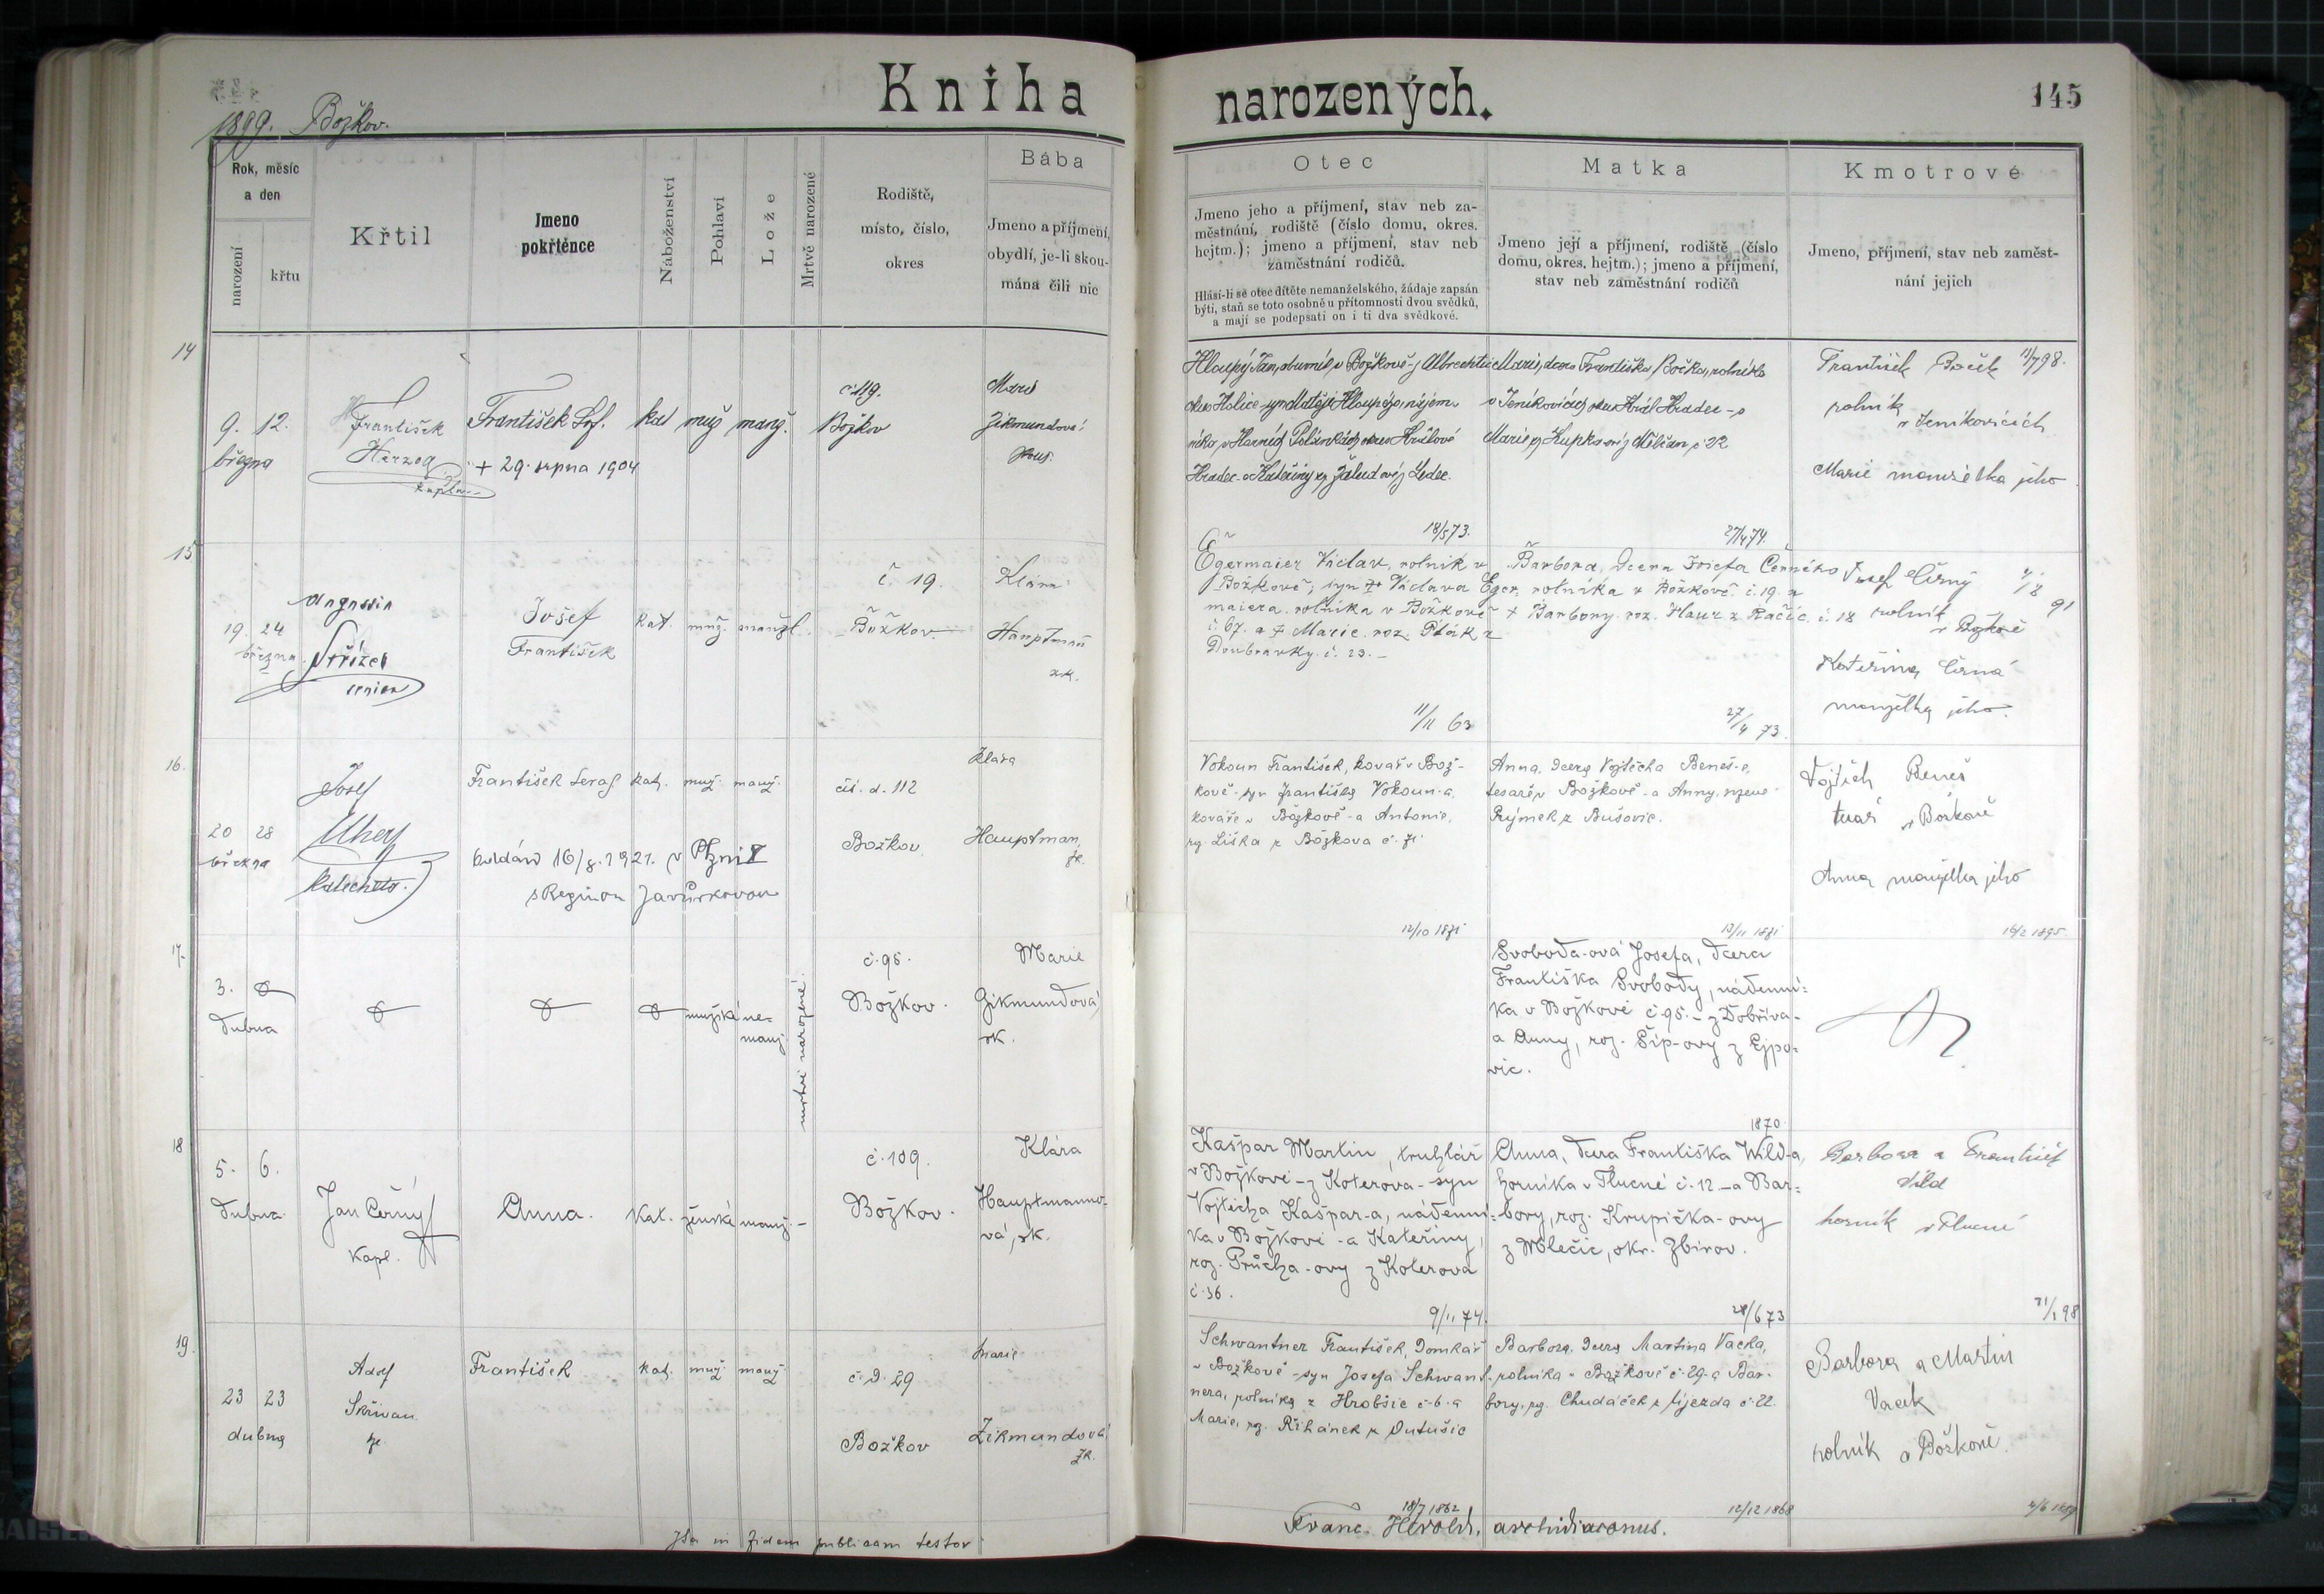 Kniha narozených.
145
1899. Božkov.
Rok, měsíc
a den
narození
křtu
Křtil
Jmeno
pokřtěnce
Náboženství
Pohlaví
Lože
Mrtvě narozené
Rodiště,
místo, číslo,
okres
Bába
Jmeno a příjmení,
obydlí, je-li skou-
mána čili nic
Otec
Jmeno jeho a příjmení, stav neb za-
městnání, rodiště (číslo domu, okres.
hejtm.); jmeno a příjmení, stav neb
zaměstnání rodičů.
Hlásí-li se otec dítěte nemanželského, žádaje zapsán
býti, staň se toto osobně u přítomnosti dvou svědků,
a mají se podepsati on i ti dva svědkové.
Matka
Jmeno její a příjmení, rodiště (číslo
domu, okres. hejtm.); jmeno a příjmení,
stav neb zaměstnání rodičů
Kmotrové
Jmeno, příjmení, stav neb zaměst-
nání jejich
14
9. 12.
března
František
Herzog
kaplan
František
kat muž manž.
+ 29. srpna 1904
č 119.
Božkov
Zikmundová
Hloupý Jan, v Božkově
okres Holice syn Matěje Hloupého,
Polánkách okres Králové
Hradec a Kateřiny
18/5 73.
Marie, dcera Františka Bočka, rolníka
v Jeníkovicích okres Král Hradec - a
Marie Kupka
27/4 74.
František Boček
rolník
v Jenikovicích
Marie manželka jeho
15
19. 24
března
Augustin
Střízek
senior
Josef
František
kat. muž. manžel.
č. 19.
Božkov
Klára
Hauptman
zk.
Egermaier Václav, rolník v
Božkově, syn + Václava Eger
maiera rolníka v Božkově
č. 67. a + Marie roz. Pták z
Doubravky. č. 23. –
11/11 63
Barbora, dcera Josefa Černého
rolníka v Božkově č. 19 a
+ Barbory roz. Haur z Račic. č. 18
27/4 73.
Josef Černý
rolník
v Božkově
91
Kateřina Černá
manželka jeho.
16.
20 28
března
Josef
Uherj
katecheta.
František Seraf. kat. muž. manž.
oddán 16/7. 1921. v Plzni
s Reginou Javůrkovou
čís. d. 112
Božkov.
Klára
Hauptman,
zk.
Vokoun František, kovář v Bož-
kově - syn Františka Vokoun-a,
kováře v Božkově - a Antonie,
rz. Liška z Božkova č. 71
12/10 1871
Anna, dcera Vojtěcha Beneš-e,
tesaře v Božkově - a Anny, rozené
Rýmek z Bušovic.
13/11 1871
Vojtěch Beneš
tesař v Božkově
Anna manželka jeho
16/2 1895.
17.
3.
dubna
mužské ne-
manž.
mrtvě narozené
č. 95.
Božkov.
Marie
Zikmundová
zk.
Svoboda-ová Josefa, dcera
Františka Svobody, nádenní-
ka v Božkově č 95. – z Dobřiva -
a Anny, roz. Šíp-ovy z Ejpo-
vic.
1870
18
5. 6.
dubna
Jan Černý
kapl.
Anna. Kat. ženské manž. –
č. 109.
Božkov.
Klára
Hauptmanno-
vá, zk.
Kašpar Martin, truhlář
v Božkově - z Koterova - syn
Vojtěcha Kašpar-a, nádenní-
ka v Božkově - a Kateřiny,
roz. Průcha-ovy z Koterova
č 36.
9/11 74.
Anna, dcera Františka Wild-a,
horníka v Tlucné č. 12. – a Bar-
bory, roz. Krupička-ovy
z Mlečic, okr. Zbirov.
28/6 73
Barbora a František
Vild
horník v Tlucné
98
19.
23 23
dubna
Adolf
Skřivan.
František kat. muž. manž.
č. d. 29
Božkov
Marie
Zikmundová
zk.
Schwantner František, domkář
v Božkově - syn Josefa Schwant-
nera, rolníka z Hrobšic č. 6. a
Marie, rz. Řihánek z Dutušic
18/7 1862
Barbora, dcera Martina Vacka,
rolníka v Božkově č 29. a Bar-
bory, rz. Chudáček z Újezda č. 22.
12/12 1868
Barbora a Martin
Vacek
rolník v Božkově.
Ita in fidem publicam testor
Franc. Herold, archidiaconus.